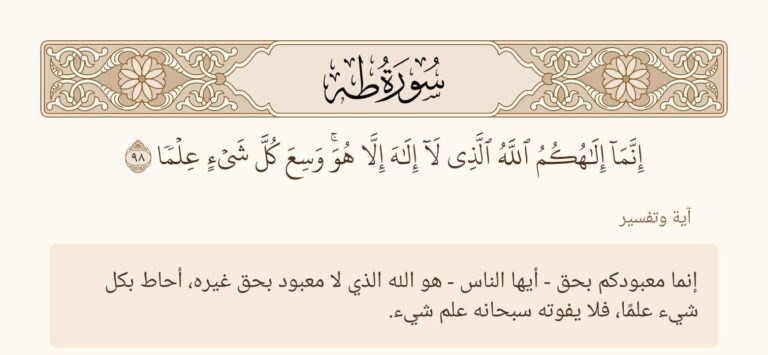 سُورَةُ طه
إِنَّمَآ إِلَٰهُكُمُ ٱللَّهُ ٱلَّذِى لَآ إِلَٰهَ إِلَّا هُوَ ۚ وَسِعَ كُلَّ شَىْءٍ عِلْمًا ٩٨
آية وتفسير
إنما معبودكم بحق - أيها الناس - هو الله الذي لا معبود بحق غيره، أحاط بكل
شيء علمًا، فلا يفوته سبحانه علم شيء.